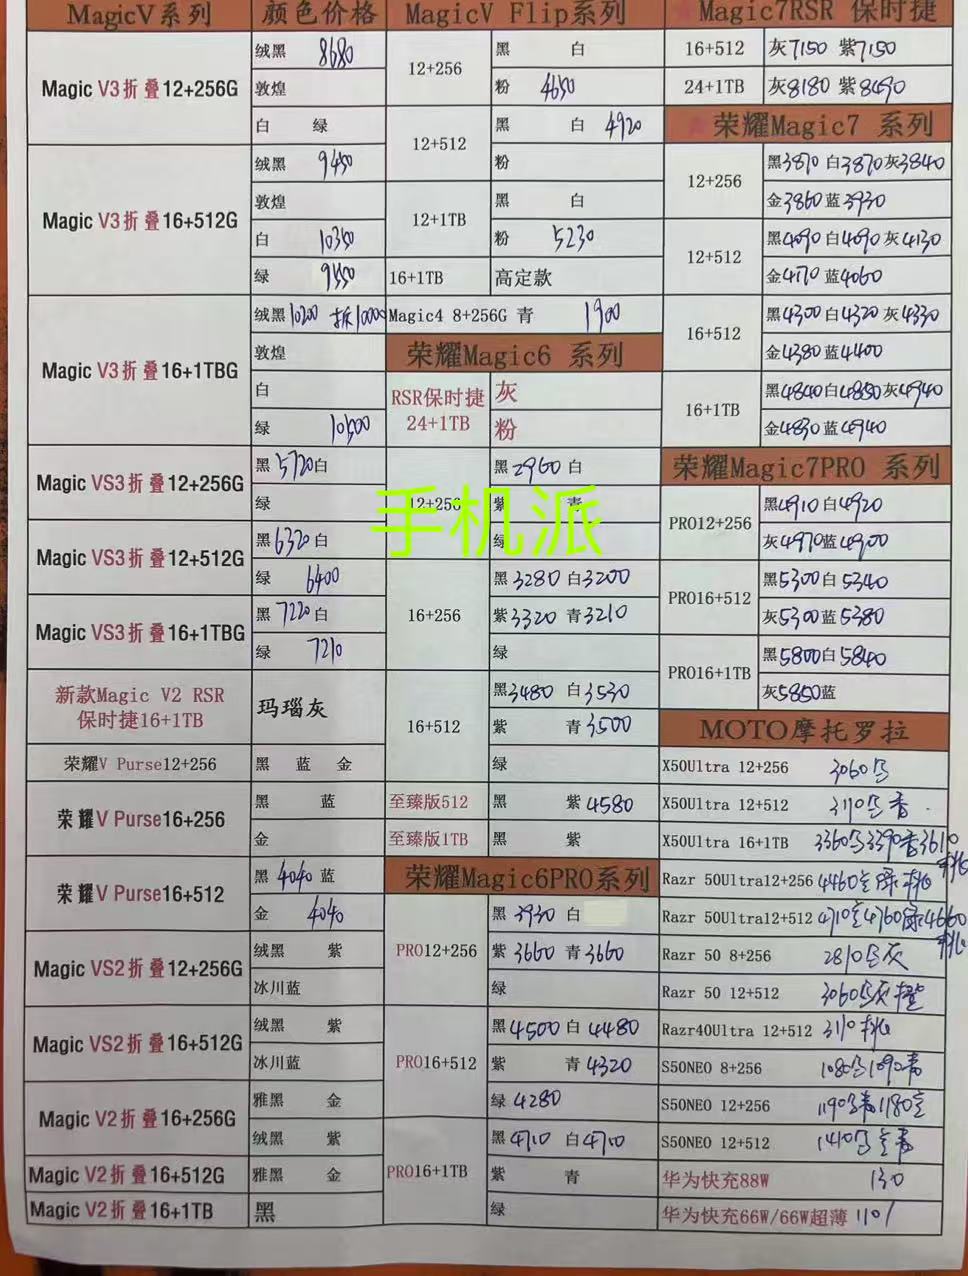 MagicV系列 颜色价格
Magic V3折叠12+256G
绒黑 8680
敦煌
白 绿
Magic V3折叠16+512G
绒黑 9450
敦煌
白 10350
绿 9550
Magic V3折叠16+1TBG
绒黑10200 拆10000
敦煌
白
绿 10500
Magic VS3折叠12+256G
黑5720白
绿
Magic VS3折叠12+512G
黑6320白
绿 6400
Magic VS3折叠16+1TBG
黑7220白
绿 7210
新款Magic V2 RSR
保时捷16+1TB
玛瑙灰
荣耀V Purse12+256
黑 蓝 金
荣耀V Purse16+256
黑 蓝
金
荣耀V Purse16+512
黑4040蓝
金 4040
Magic VS2折叠12+256G
绒黑 紫
冰川蓝
Magic VS2折叠16+512G
绒黑 紫
冰川蓝
Magic V2折叠16+256G
雅黑 金
绒黑 紫
Magic V2折叠16+512G
雅黑 金
Magic V2折叠16+1TB
黑
MagicV Flip系列
12+256
黑 白
粉 4650
12+512
黑 白 4920
粉
12+1TB
黑 白
粉 5230
16+1TB 高定款
Magic4 8+256G 青 1900
荣耀Magic6 系列
RSR保时捷
24+1TB
灰
粉
12+256
黑2960白
紫 青
绿
16+256
黑3280白3200
紫3320青3210
绿
16+512
黑3480 白3530
紫 青3500
绿
至臻版512 黑 紫4580
至臻版1TB 黑 紫
荣耀Magic6PRO系列
PRO12+256
黑3930白
紫3660青3660
绿
PRO16+512
黑4500白4480
紫 青4320
绿4280
PRO16+1TB
黑4710 白4710
紫 青
绿
Magic7RSR 保时捷
16+512 灰7150 紫7150
24+1TB 灰8180 紫8490
荣耀Magic7 系列
12+256
黑3870白3870灰3840
金3860蓝3930
12+512
黑4090白4090灰4130
金4170蓝4060
16+512
黑4300白4320灰4330
金4380蓝4400
16+1TB
黑4840白4850灰4940
金4830蓝4940
荣耀Magic7PRO 系列
PRO12+256
黑4910白4920
灰4970蓝4900
PRO16+512
黑5300白5340
灰5300蓝5380
PRO16+1TB
黑5800白5840
灰5850蓝
MOTO摩托罗拉
X50Ultra 12+256 3060
X50Ultra 12+512 3110
X50Ultra 16+1TB 3360 3390 3610
Razr 50Ultra12+256 4460
Razr 50Ultra12+512 4710 4760 4660
Razr 50 8+256 2810 灰
Razr 50 12+512 3060 灰橙
Razr40Ultra 12+512 3110
S50NEO 8+256 1080 1090
S50NEO 12+256 1190 1180
S50NEO 12+512 1410
华为快充88W 130
华为快充66W/66W超薄 110
手机派